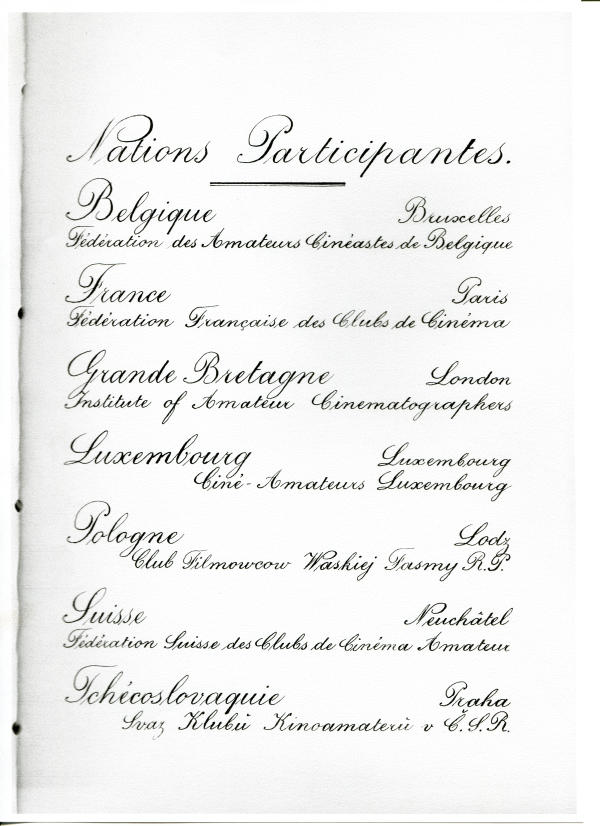 Nations Participantes.
Belgique Bruxelles
Fédération des Amateurs Cinéastes de Belgique
France Paris
Fédération Française des Clubs de Cinéma
Grande Bretagne London
Institute of Amateur Cinematographers
Luxembourg Luxembourg
Ciné-Amateurs Luxembourg
Pologne Lodz
Club Filmowcow Waskiej Tasmy R.P.
Suisse Neuchâtel
Fédération Suisse des Clubs de Cinéma Amateur
Tchécoslovaquie Praha
Svaz Klubů Kinoamaterů v Č.S.R.